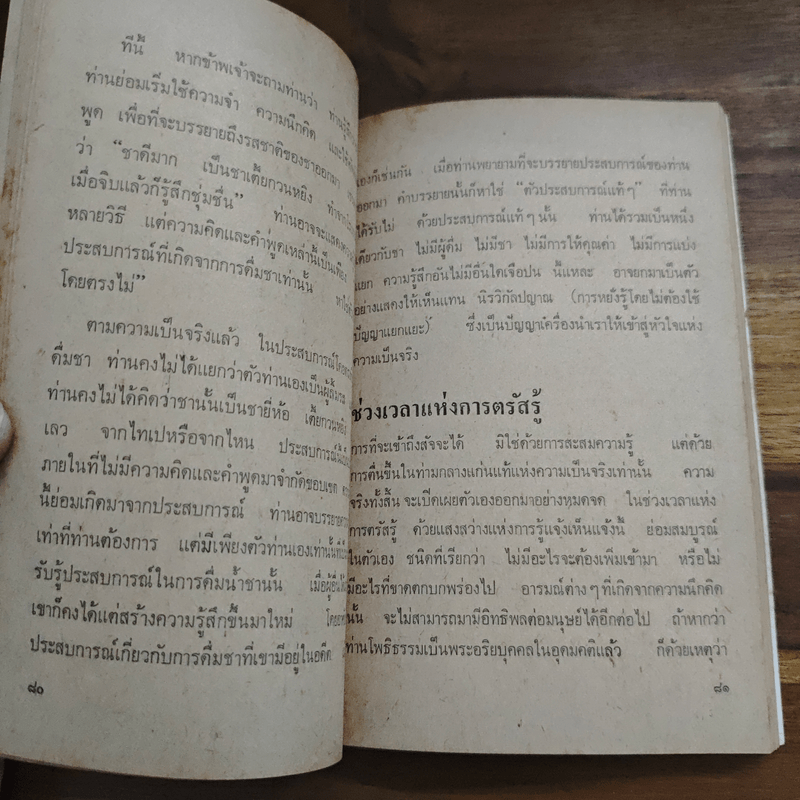 ทีนี้ หากข้าพเจ้าจะถามท่านว่า
ท่านย่อมเริ่มใช้ความจำ ความนึกคิด และ
พูด เพื่อที่จะบรรยายถึงรสชาติของชาออกมา
ว่า “ชาดีมาก เป็นชาเตี้ยกวนหยิง
เมื่อจิบแล้วก็รู้สึกชุ่มชื่น” ท่านอาจจะแสดง
หลายวิธี แต่ความคิดและคำพูดเหล่านี้เป็นเพียง
ประสบการณ์ที่เกิดจากการดื่มชาเท่านั้น
โดยตรงไม่”
ตามความเป็นจริงแล้ว ในประสบการณ์
ดื่มชา ท่านคงไม่ได้แยกว่าตัวท่านเองเป็น
ท่านคงไม่ได้คิดว่าชานั้นเป็นชายี่ห้อ เตี้ยกวนหยิง
เลว จากไทเปหรือจากไหน ประสบการณ์
ภายในที่ไม่มีความคิดและคำพูดมาจำกัดขอบเขต
นี้ย่อมเกิดมาจากประสบการณ์ ท่านอาจบรรยาย
เท่าที่ท่านต้องการ แต่มีเพียงตัวท่านเองเท่านั้น
รับรู้ประสบการณ์ในการดื่มน้ำชานั้น เมื่อผู้อื่น
เขาก็คงได้แต่สร้างความรู้สึกขึ้นมาใหม่
ประสบการณ์เกี่ยวกับการดื่มชาที่เขามีอยู่ในอดีต
๘๐
เองก็เช่นกัน เมื่อท่านพยายามที่จะบรรยายประสบการณ์ของท่าน
ออกมา คำบรรยายนั้นก็หาใช่ “ตัวประสบการณ์แท้ๆ” ที่ท่าน
ได้รับไม่ ด้วยประสบการณ์แท้ๆ นั้น ท่านได้รวมเป็นหนึ่ง
เดียวกับชา ไม่มีผู้ดื่ม ไม่มีชา ไม่มีการให้คุณค่า ไม่มีการแบ่ง
แยก ความรู้สึกอันไม่มีอื่นใดเจือปน นี้แหละ อาจยกมาเป็นตัว
อย่างแสดงให้เห็นแทน นิรวิกัลปญาณ (การหยั่งรู้โดยไม่ต้องใช้
ปัญญาแยกแยะ) ซึ่งเป็นปัญญาเครื่องนำเราให้เข้าสู่หัวใจแห่ง
ความเป็นจริง
ช่วงเวลาแห่งการตรัสรู้
การที่จะเข้าถึงสัจจะได้ มิใช่ด้วยการสะสมความรู้ แต่ด้วย
การตื่นขึ้นในท่ามกลางแก่นแท้แห่งความเป็นจริงเท่านั้น ความ
จริงทั้งสิ้น จะเปิดเผยตัวเองออกมาอย่างหมดจด ในช่วงเวลาแห่ง
การตรัสรู้ ด้วยแสงสว่างแห่งการรู้แจ้งเห็นแจ้งนี้ ย่อมสมบูรณ์
ในตัวเอง ชนิดที่เรียกว่า ไม่มีอะไรจะต้องเพิ่มเข้ามา หรือไม่
มีอะไรที่ขาดตกบกพร่องไป อารมณ์ต่างๆ ที่เกิดจากความนึกคิด
นั้น จะไม่สามารถมามีอิทธิพลต่อมนุษย์ได้อีกต่อไป ถ้าหากว่า
ท่านโพธิธรรมเป็นพระอริยบุคคลในอุดมคติแล้ว ก็ด้วยเหตุว่า
๘๑